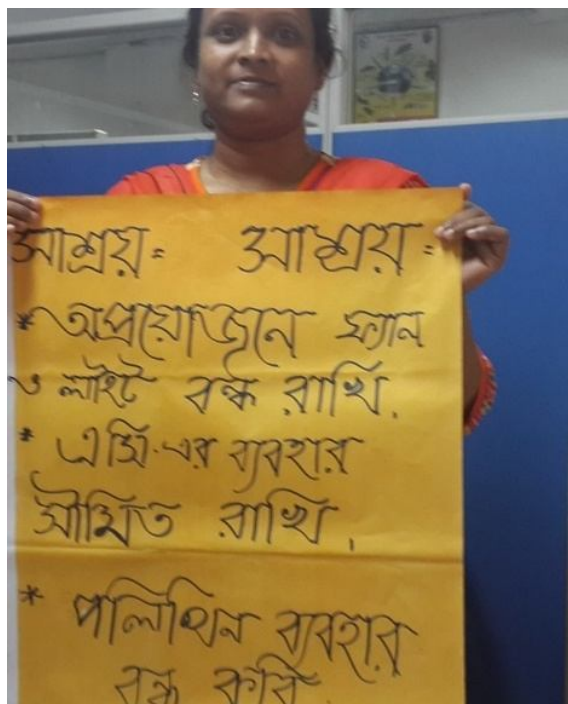 আশ্রয়: আশ্রয়:
* অপ্রয়োজনে ফ্যান
ও লাইট বন্ধ রাখি.
* এসি.এর ব্যবহার
সীমিত রাখি.
* পলিথিন ব্যবহার
বন্ধ করি.